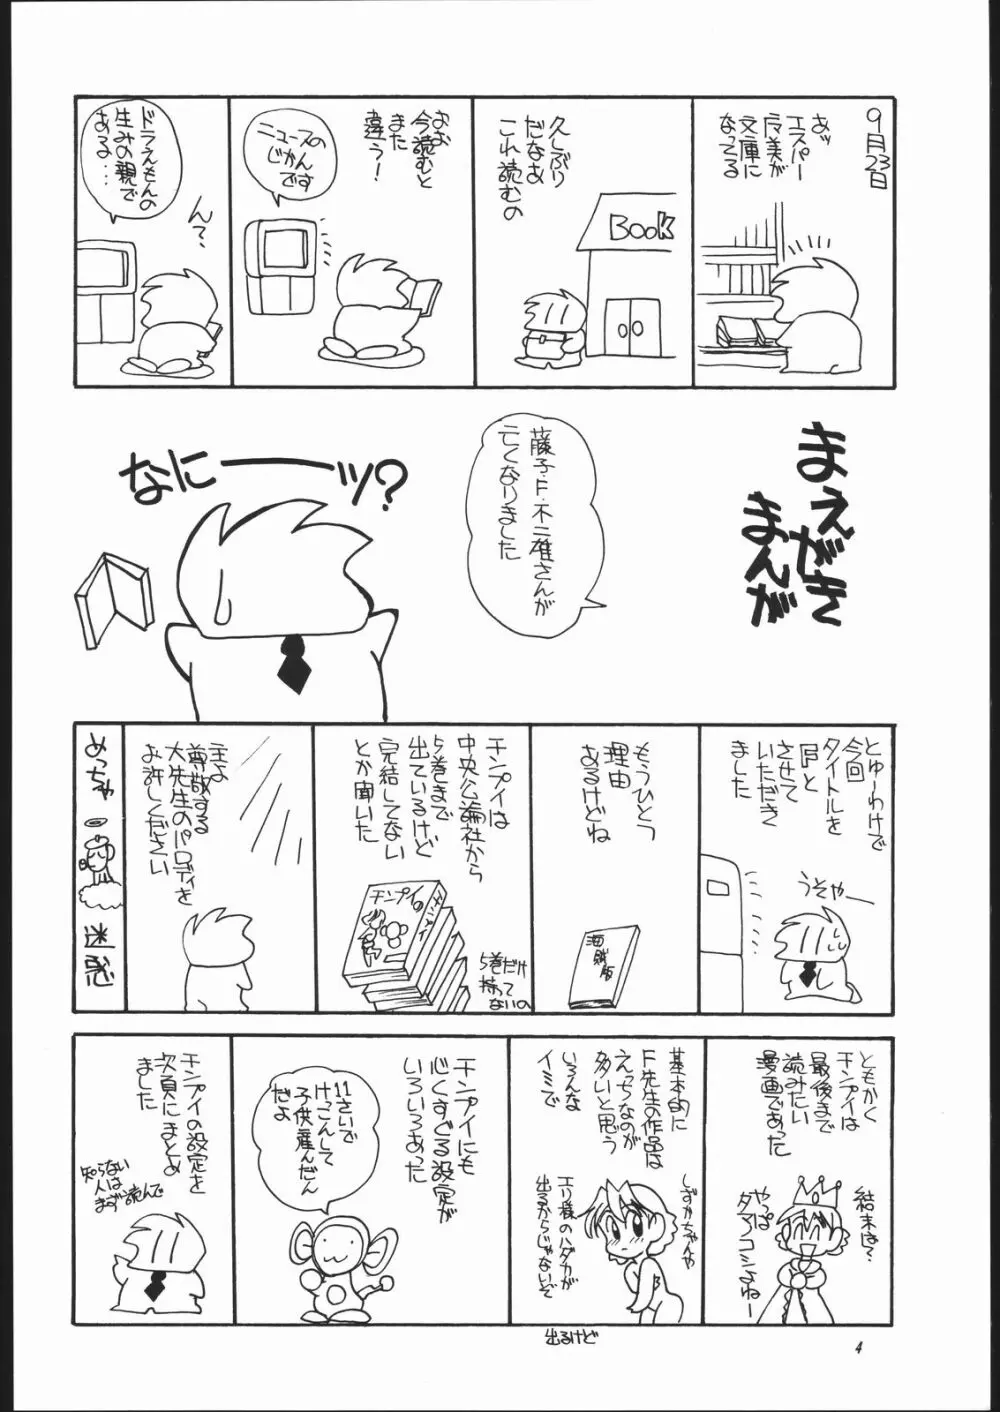 9月23日
あッ
エスパー
魔美が
文庫に
なってる
BOOK
久しぶり
だなあ
これ読むの
おお
今読むと
また
違う!
ニュースの
じかんです
ん?
ドラえもんの
生みの親で
ある…
まえがき
まんが
藤子・F・不二雄さんが
亡くなりました
なにーーッ?
とゆーわけで
今回
タイトルを
『F』と
させて
いただき
ました
うそやー
もうひとつ
理由
あるけどね
海賊版
チンプイは
中央公論社から
5巻まで
出ているけど
完結してない
とか聞いた
チンプイ
5巻だけ
持って
ないの
主よ
尊敬する
大先生のパロディを
お許しください
めっちゃ
迷惑
ともかく
チンプイは
最後まで
読みたい
漫画であった
結末は?
やっぱ
タマノコシよねー
基本的に
F先生の作品は
えっちなのが
多いと思う
いろんな
イミで
しずかちゃんや
エリ様のハダカが
出るからじゃないぞ
出るけど
チンプイにも
心くすぐる設定が
いろいろあった
11さいで
けっこんして
子供産んだん
だよ
チンプイの設定を
次頁にまとめ
ました
知らない
人は
まず読んで
4